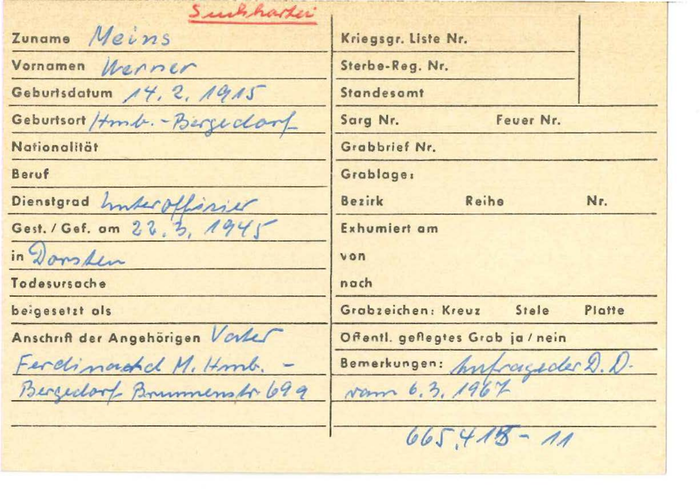 Suchkartei
Zuname Meins
Vornamen Werner
Geburtsdatum 14.2.1915
Geburtsort Hmb.-Bergedorf
Nationalität
Beruf
Dienstgrad Unteroffizier
Gest./Gef. am 22.3.1945
in Dorsten
Todesursache
beigesetzt als
Anschrift der Angehörigen Vater
Ferdinand M. Hmb.-
Bergedorf Brunnenstr 69a
Kriegsgr. Liste Nr.
Sterbe-Reg. Nr.
Standesamt
Sarg Nr. Feuer Nr.
Grabbrief Nr.
Grablage:
Bezirk Reihe Nr.
Exhumiert am
von
nach
Grabzeichen: Kreuz Stele Platte
Offentl. geflegtes Grab ja/nein
Bemerkungen: Anfrage der D.D.
vom 6.3.1967